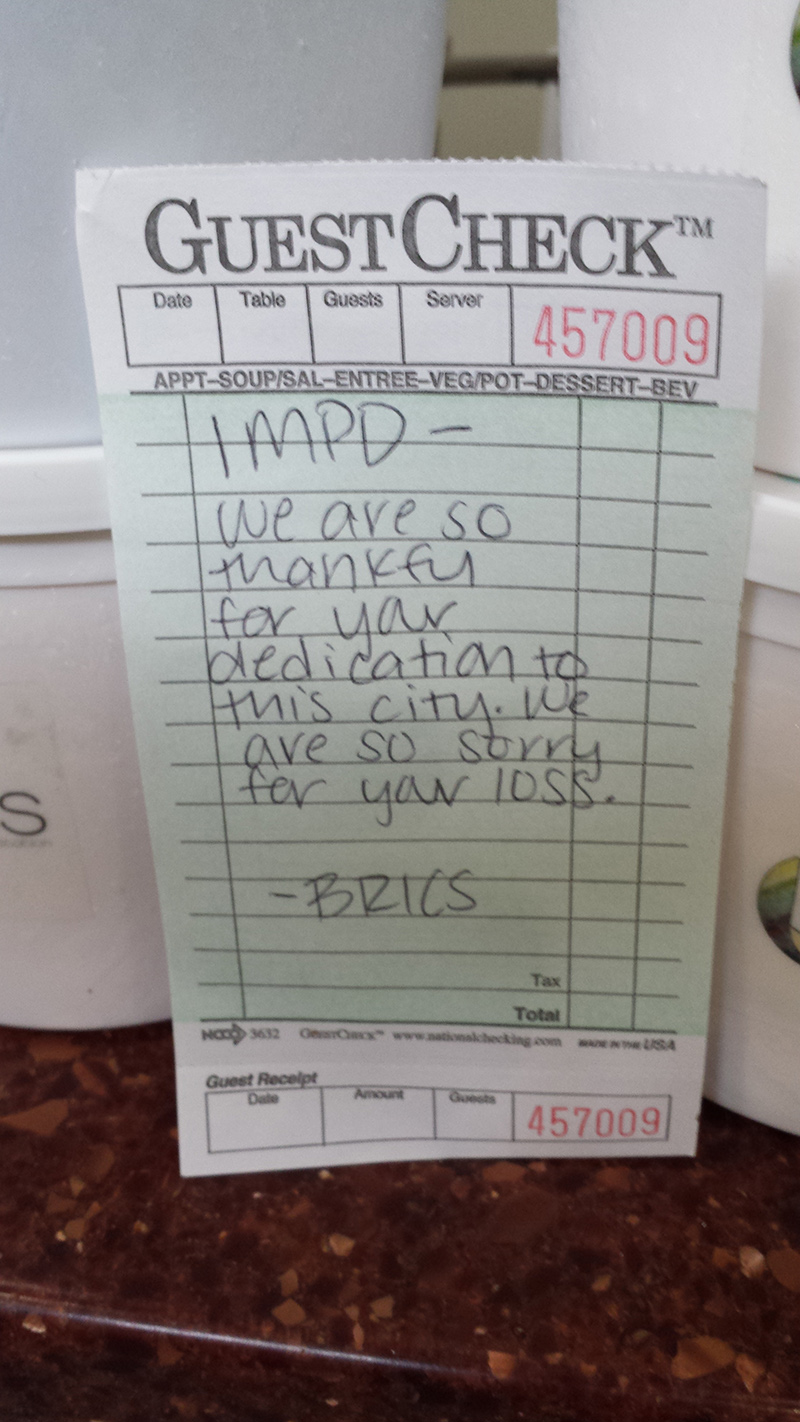 GUESTCHECK™
Date Table Guests Server 457009
APPT–SOUP/SAL–ENTREE–VEG/POT–DESSERT–BEV
IMPD –
We are so
thankful
for your
dedication to
this city. We
are so sorry
for your loss.
–BRICS
Tax
Total
3632 GUESTCHECK™ www.nationalchecking.com MADE IN THE USA
Guest Receipt
Date Amount Guests 457009
S